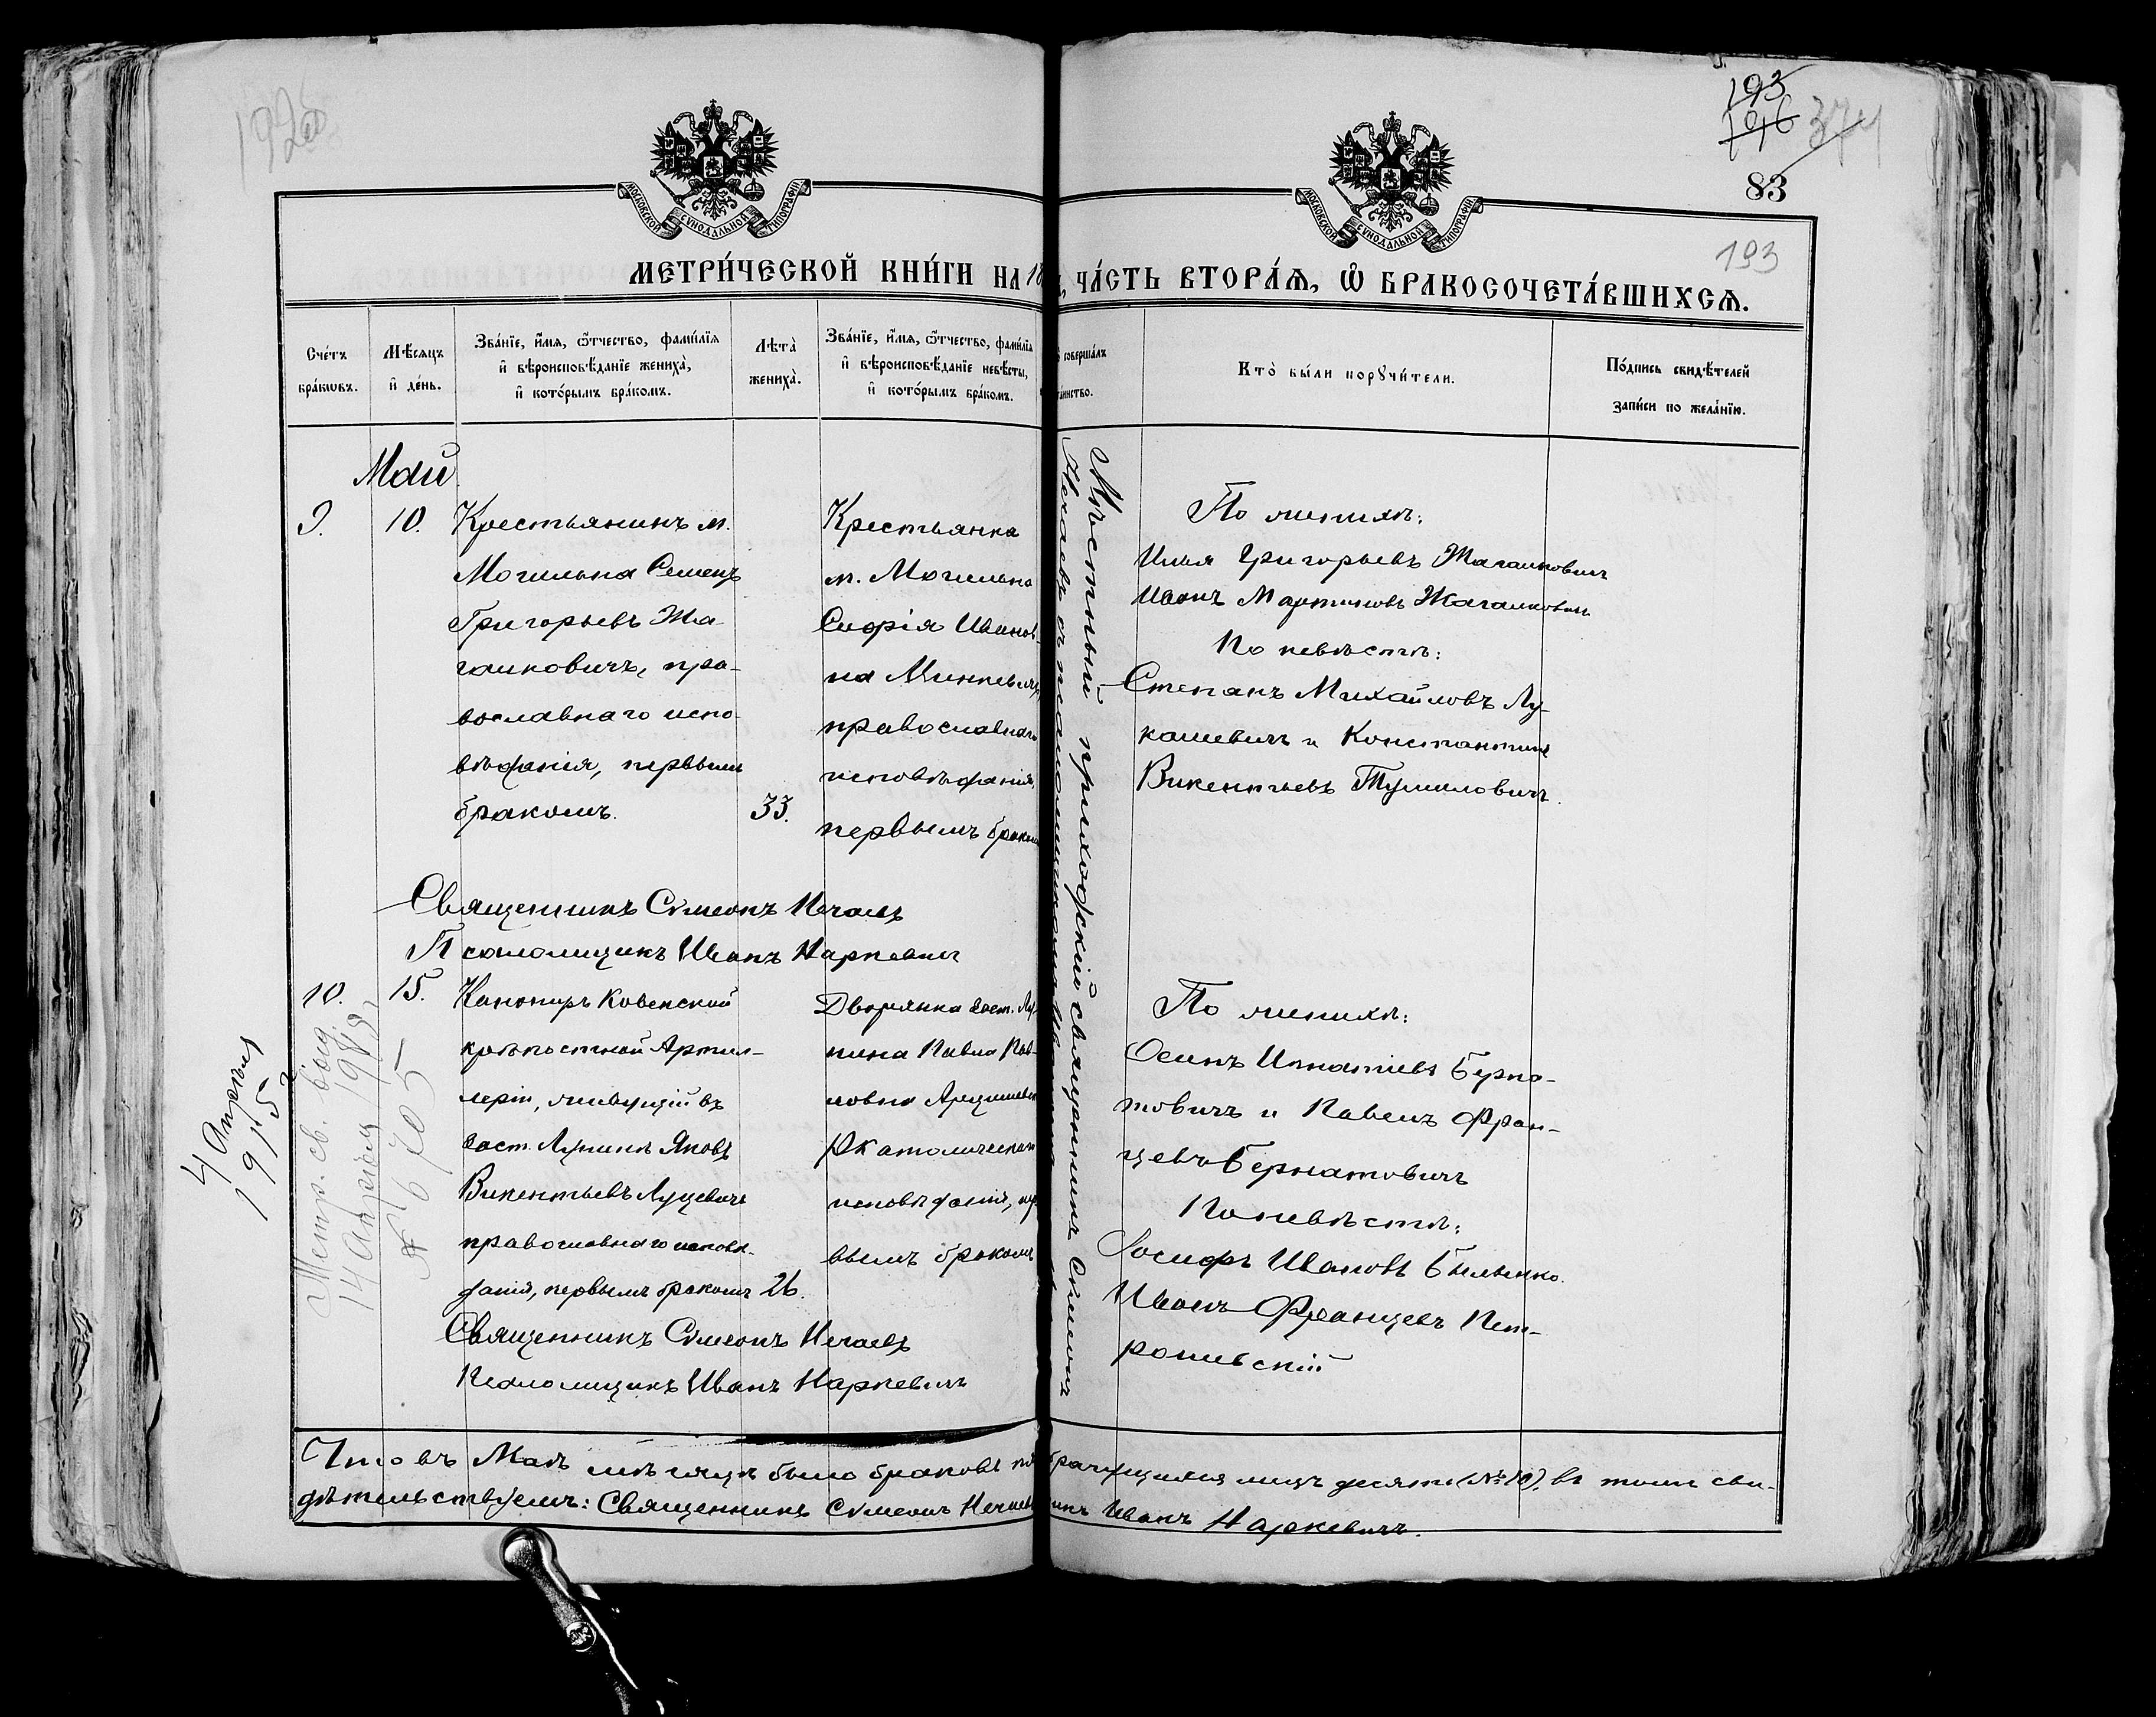 192об
193
196
374
83
193
МОСКОВСКОЙ СУНОДАЛЬНОЙ ТИПОГРАФІИ
МОСКОВСКОЙ СУНОДАЛЬНОЙ ТИПОГРАФІИ
МЕТРИ́ЧЕСКОЙ КНИ́ГИ НА 18
ЧА́СТЬ ВТОРА́Ѧ, Ѿ БРАКОСОЧЕТА́ВШИХСѦ.
Сче́тъ бра́кωвъ.
Мѣ́сяцъ и҆ де́нь.
Зва́нїе, и҆́мя, ѻ҆́тчество, фами́лїя и҆ вѣроисповѣ́данїе жениха̀, и҆ кото́рымъ бра́комъ.
Лѣта̀ жениха̀.
Зва́нїе, и҆́мя, ѻ҆́тчество, фами́лїя и҆ вѣроисповѣ́данїе невѣ́сты, и҆ кото́рымъ бра́комъ.
соверша́лъ
та́инство.
Кто̀ бы́ли порꙋчи́тели.
По́дпись свидѣ́телей за́писи по жела́нїю.
Май
9.
10.
Крестьянинъ м.
Могильна Семенъ
Григорьевъ Жа-
галковичъ, пра-
вославнаго испо-
вѣданія, первымъ
бракомъ.
33.
Крестьянка
м. Могильна
Софія Иванов-
на Минкевичъ,
православнаго
исповѣданія,
первымъ браком
Мѣстный приходскій священникъ Симеонъ
Нечаевъ съ псаломщикомъ
По женихѣ:
Илья Григорьевъ Жагалкович
Иванъ Мартиновъ Жагалкович
По невѣстѣ:
Степанъ Михайловъ Лу-
кашевичъ и Константинъ
Викентьевъ Тумиловичъ.
Священникъ Сѵмеонъ Нечаевъ
Псаломщикъ Иванъ Наркевичъ
10.
15.
Канониръ Ковенской
крѣпостной Артил-
леріи, живущій въ
заст. Лунинъ Яковъ
Викентьевъ Луцевичъ
православнаго исповѣ-
данія, первымъ бракомъ
26.
Дворянка заст. Лу-
нина Павла Пав-
ловна
Р.католическаго
исповѣданія, пер
вымъ бракомъ
По женихѣ:
Осипъ Игнатіевъ Берна-
товичъ и Павелъ Фран-
цевъ Бернатовичъ
По невѣстѣ:
Іосифъ Ивановъ Былинко.
Иванъ Францевъ Пет-
рашевскій
Священникъ Сѵмеонъ Нечаевъ
Псаломщикъ Иванъ Наркевичъ
4 Апрѣля
1915 г.
Метр. св. выд.
14 Апрѣля 19
№ 6705
Что въ Маѣ мѣсяцѣ было браковъ
брачущихся лицъ десять (№ 10), въ томъ сви-
дѣтельствуемъ: Священникъ Сѵмеонъ Нечаевъ
икъ Иванъ Наркевичъ.